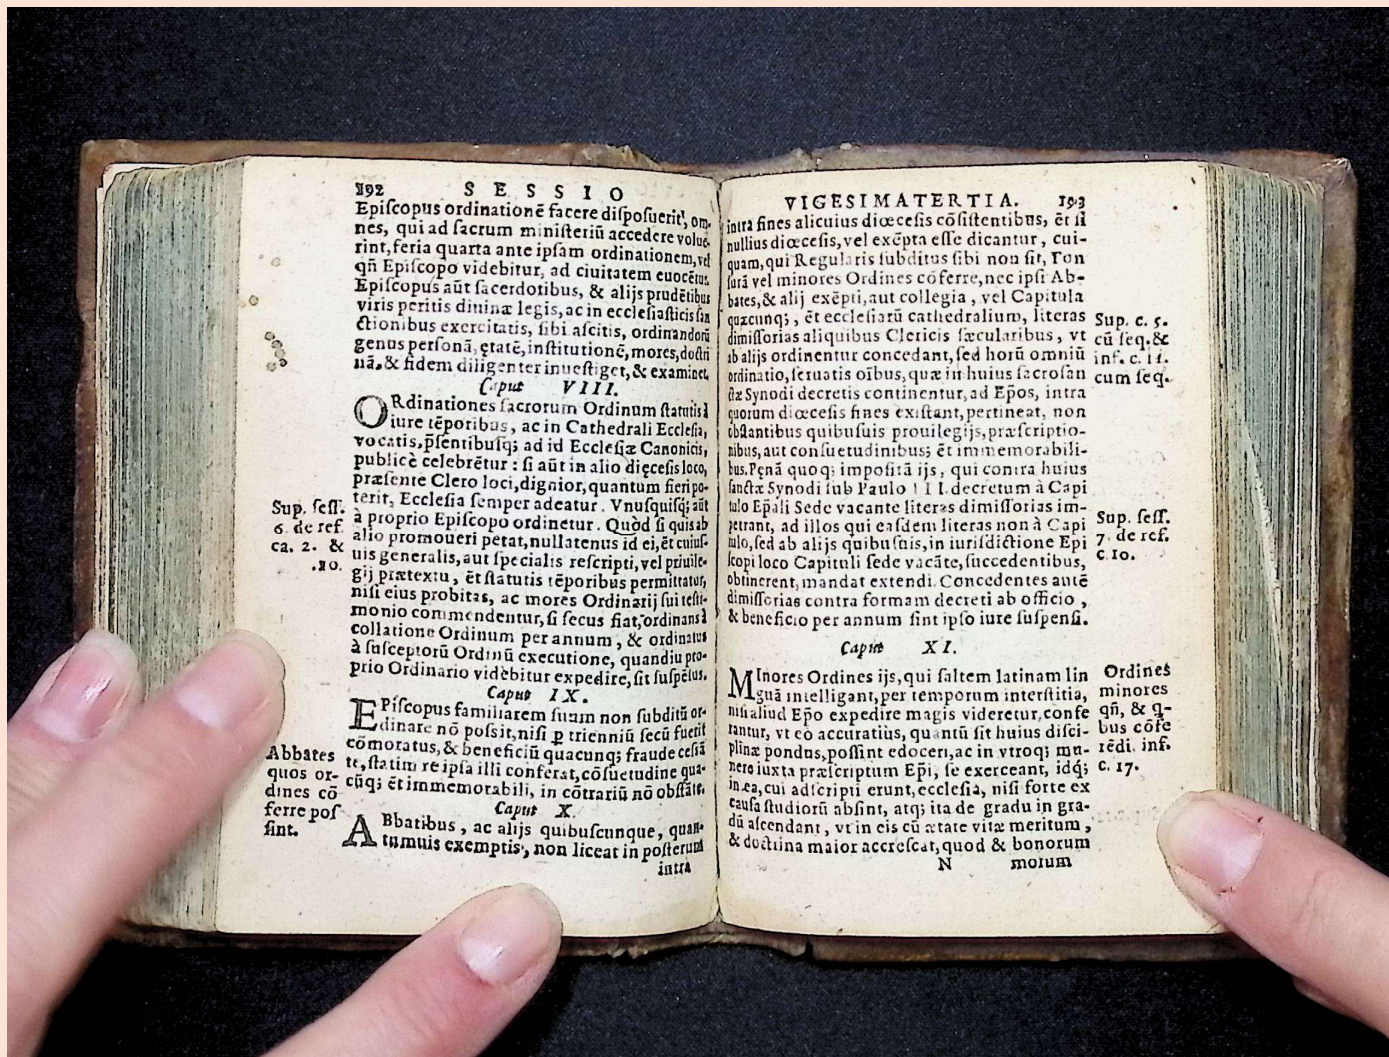 192 SESSIO
Episcopus ordinationē facere disposuerit, om-
nes, qui ad sacrum ministeriū accedere volue-
rint, feria quarta ante ipsam ordinationem, vel
qñ Episcopo videbitur, ad ciuitatem euocētur.
Episcopus aūt sacerdotibus, & alijs prudētibus
viris peritis diuinæ legis, ac in ecclesiasticis san
ctionibus exercitatis, sibi ascitis, ordinandorū
genus personā, ętatē, institutionē, mores, doctri
nā, & fidem diligenter inuestiget, & examinet.
Caput VIII.
ORdinationes sacrorum Ordinum statutis à
iure tēporibus, ac in Cathedrali Ecclesia,
vocatis, p̄sentibusq; ad id Ecclesiæ Canonicis,
publicè celebrētur : si aūt in alio dięcesis loco,
præsente Clero loci, dignior, quantum fieri po-
terit, Ecclesia semper adeatur. Vnusquisq; aūt
à proprio Episcopo ordinetur. Quòd si quis ab
alio promoueri petat, nullatenus id ei, ēt cuius-
uis generalis, aut specialis rescripti, vel priuile-
gij prætextu, ēt statutis tēporibus permittatur,
nisi eius probitas, ac mores Ordinarij sui testi-
monio commendentur, si secus fiat, ordinans à
collatione Ordinum per annum, & ordinatus
à susceptorū Ordinū executione, quandiu pro-
prio Ordinario videbitur expedire, sit suspēsus.
Caput IX.
EPiscopus familiarem suum non subditū or-
dinare nō possit, nisi ꝑ trienniū secū fuerit
cōmoratus, & beneficiū quacunq; fraude cessā
te, statim re ipsa illi conferat, cōsuetudine qua-
cūq; ēt immemorabili, in cōtrariū nō obstāte.
Caput X.
ABbatibus, ac alijs quibuscunque, quan-
tumuis exemptis, non liceat in posterum
intra
Sup. sess.
6. de ref.
ca. 2. &
.10.
Abbates
quos or-
dines cō
ferre pos
sint.
VIGESIMATERTIA. 193
intra fines alicuius diœcesis cōsistentibus, ēt si
nullius diœcesis, vel exēpta esse dicantur, cui-
quam, qui Regularis subditus sibi non sit, Ton
surā vel minores Ordines cōferre, nec ipsi Ab-
bates, & alij exēpti, aut collegia, vel Capitula
quæcunq;, ēt ecclesiarū cathedralium, literas
dimissorias aliquibus Clericis sæcularibus, vt
ab alijs ordinentur concedant, sed horū omniū
ordinatio, seruatis oībus, quæ in huius sacrosan
ctæ Synodi decretis continentur, ad Ep̄os, intra
quorum diœcesis fines existant, pertineat, non
obstantibus quibusuis priuilegijs, præscriptio-
nibus, aut consuetudinibus; ēt immemorabili-
bus. Pęnā quoq; impositā ijs, qui contra huius
sanctæ Synodi sub Paulo III. decretum à Capi
tulo Ep̄ali Sede vacante literas dimissorias im-
petrant, ad illos qui easdem literas non à Capi
tulo, sed ab alijs quibusuis, in iurisdictione Epi
scopi loco Capituli sede vacāte, succedentibus,
obtinerent, mandat extendi. Concedentes autē
dimissorias contra formam decreti ab officio,
& beneficio per annum sint ipso iure suspensi.
Caput XI.
MInores Ordines ijs, qui saltem latinam lin
guā intelligant, per temporum interstitia,
nisi aliud Ep̄o expedire magis videretur, confe
rantur, vt eò accuratiùs, quantū sit huius disci-
plinæ pondus, possint edoceri, ac in vtroq; mu-
nere iuxta præscriptum Ep̄i, se exerceant, idq;
in ea, cui adscripti erunt, ecclesia, nisi forte ex
causa studiorū absint, atq; ita de gradu in gra-
dū ascendant, vt in eis cū ætate vitæ meritum,
& doctrina maior accrescat, quod & bonorum
N morum
Sup. c. 5.
cū seq. &
inf. c. 11.
cum seq.
Sup. sess.
7. de ref.
c. 10.
Ordines
minores
qñ, & q-
bus cōfe
rēdi. inf.
c. 17.